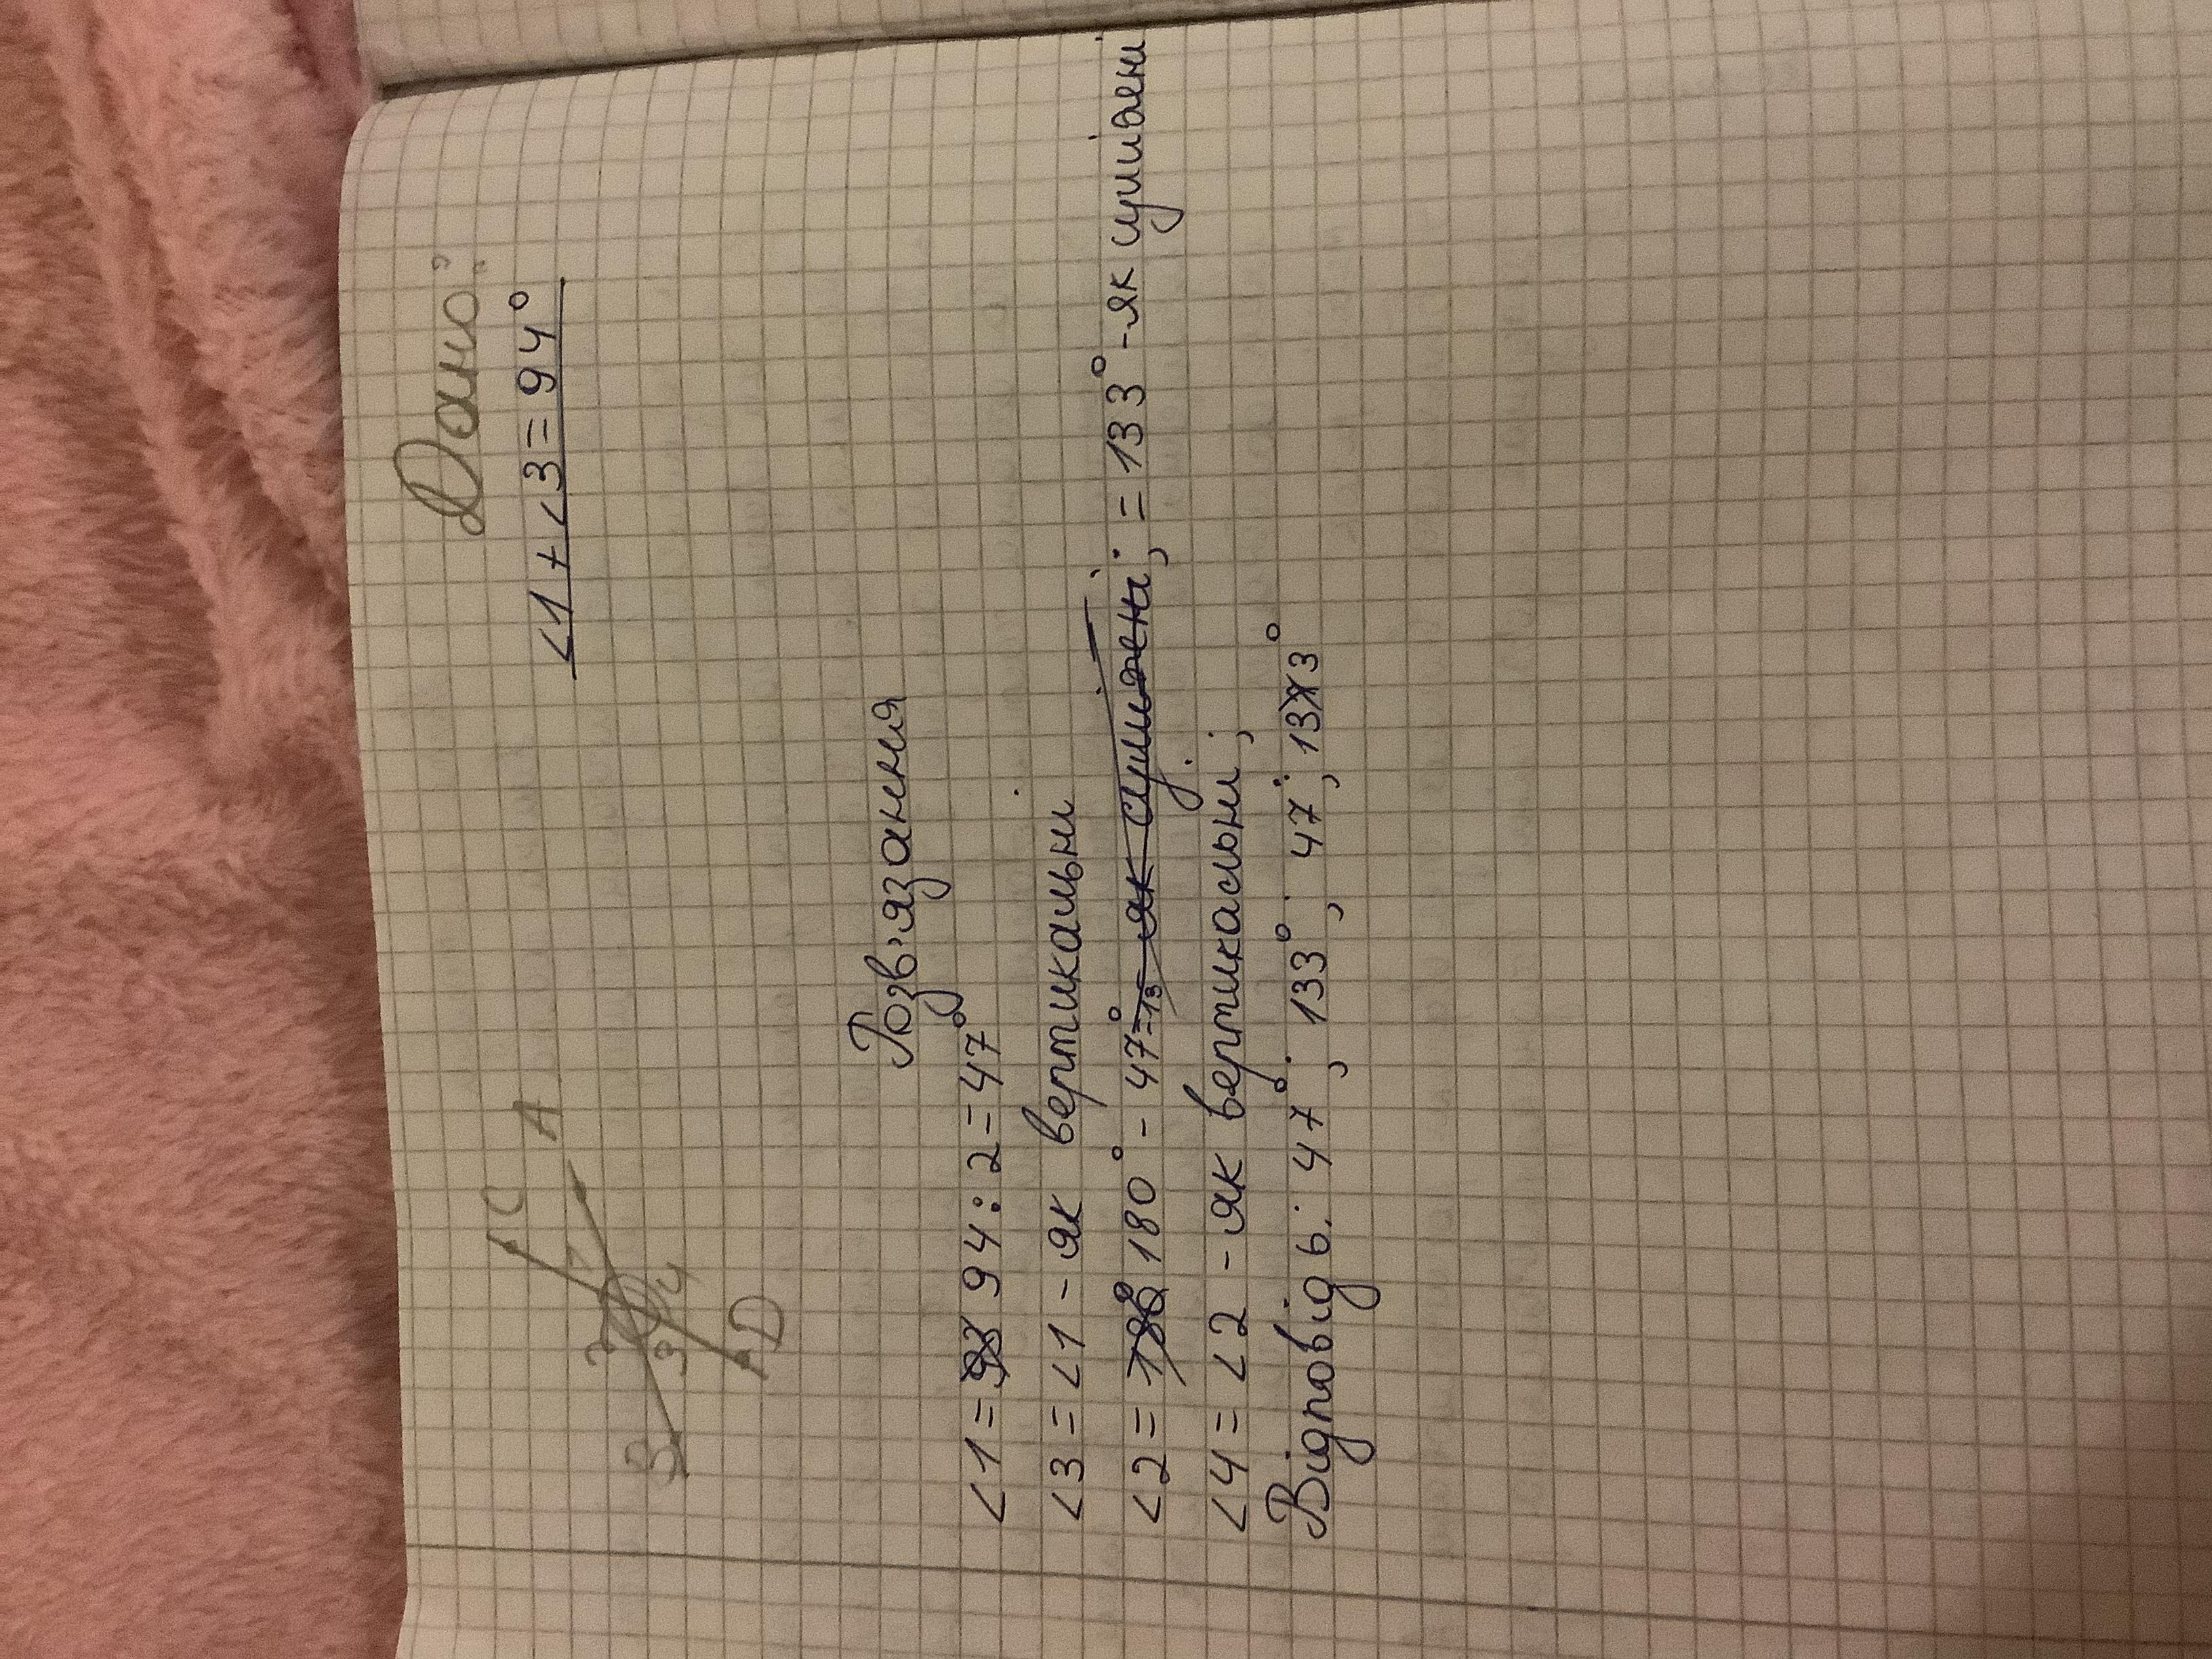 Дано:
C
A
2
3
4
B
D
<1 + <3 = 94°
Розв'язання
<1 = 94 : 2 = 47°
<3 = <1 - як вертикальни
<2 = 180° - 47° = 133° - як суміжені
<4 = <2 - як вертикальні;
Відповідь: 47°; 133°; 47°; 133°